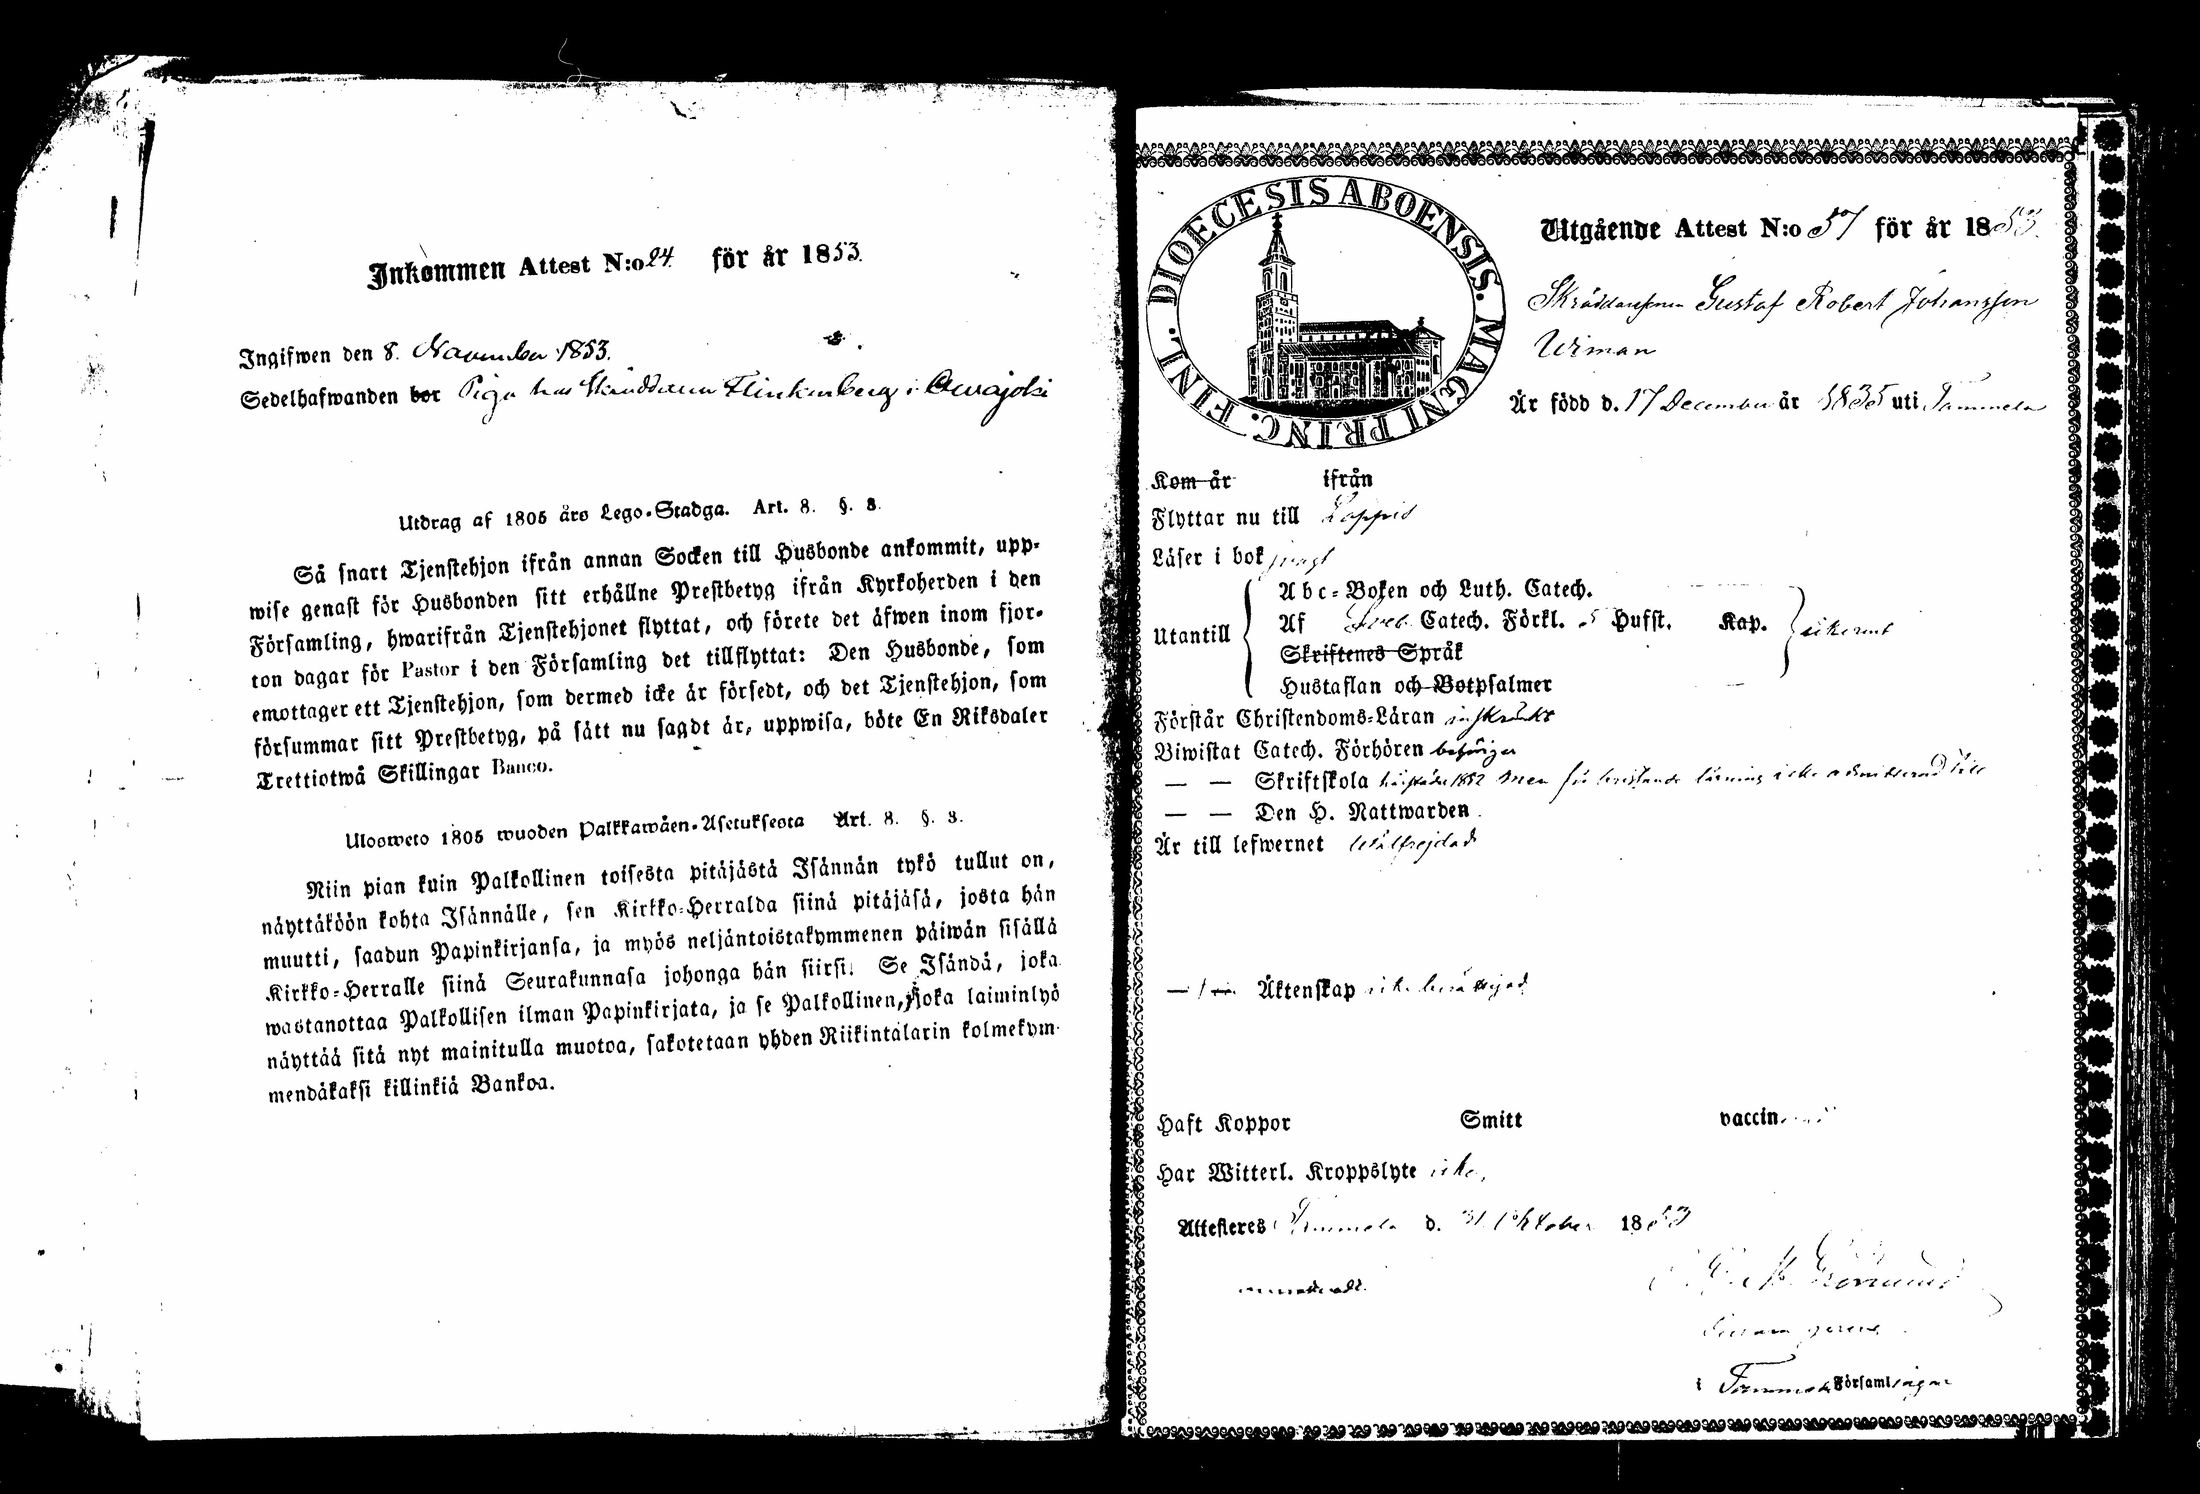 Inkommen Attest N:o 24. för år 1853.
Ingifwen den 8. November 1853.
Sedelhafwanden bor Piga hos Skräddaren Flinkenberg i
Utdrag af 1805 års Lego-Stadga. Art. 8. §. 3.
Så snart Tjenstehjon ifrån annan Socken till Husbonde ankommit, upp-
wise genast för Husbonden sitt erhållne Prestbetyg ifrån Kyrkoherden i den
Församling, hwarifrån Tjenstehjonet flyttat, och förete det äfwen inom fjor-
ton dagar för Pastor i den Församling det tillflyttat: Den Husbonde, som
emottager ett Tjenstehjon, som dermed icke är försedt, och det Tjenstehjon, som
försummar sitt Prestbetyg, på sätt nu sagdt är, uppwisa, böte En Riksdaler
Trettiotwå Skillingar Banco.
Ulosweto 1805 wuoden Palkkawäen-Asetuksesta Art. 8. §. 3.
Niin pian kuin Palkollinen toisesta pitäjästä Isännän tykö tullut on,
näyttäköön kohta Isännälle, sen Kirkko-Herralda siinä pitäjäsä, josta hän
muutti, saadun Papinkirjansa, ja myös neljäntoistakymmenen päiwän sisällä
Kirkko-Herralle siinä Seurakunnasa johonga hän siirsi. Se Isändä, joka
wastanottaa Palkollisen ilman Papinkirjata, ja se Palkollinen, joka laiminlyö
näyttää sitä nyt mainitulla muotoa, sakotetaan yhden Riikintalarin kolmekym-
mendäkaksi killinkiä Bankoa.
DIOECESIS ABOENSIS. MAGNI PRINC. FINL.
Utgående Attest N:o 57 för år 1853.
Skräddaresonen Gustaf Robert Johansson
Wiman
Är född d. 17 December år 1835 uti Tammela
Kom år ifrån
Flyttar nu till Loppis
Läser i bok
Abc-Boken och Luth. Catech.
Utantill Af Sveb. Catech. Förkl. 5 Hufst. Kap.
Skriftenes Språk
Hustaflan och Botpsalmer
Förstår Christendoms-Läran inskränkt
Biwistat Catech. Förhören behörigen
— — Skriftskola 1852 men för bristande läsning icke admitterad till
— — Den H. Nattwarden.
Är till lefwernet wälfrejdad
— — Äktenskap icke berättigad
Haft Koppor Smitt vaccin
Har Witterl. Kroppslyte icke,
Attesteres Tammela d. 31 Oktober 1853
i Tammela Församlingar